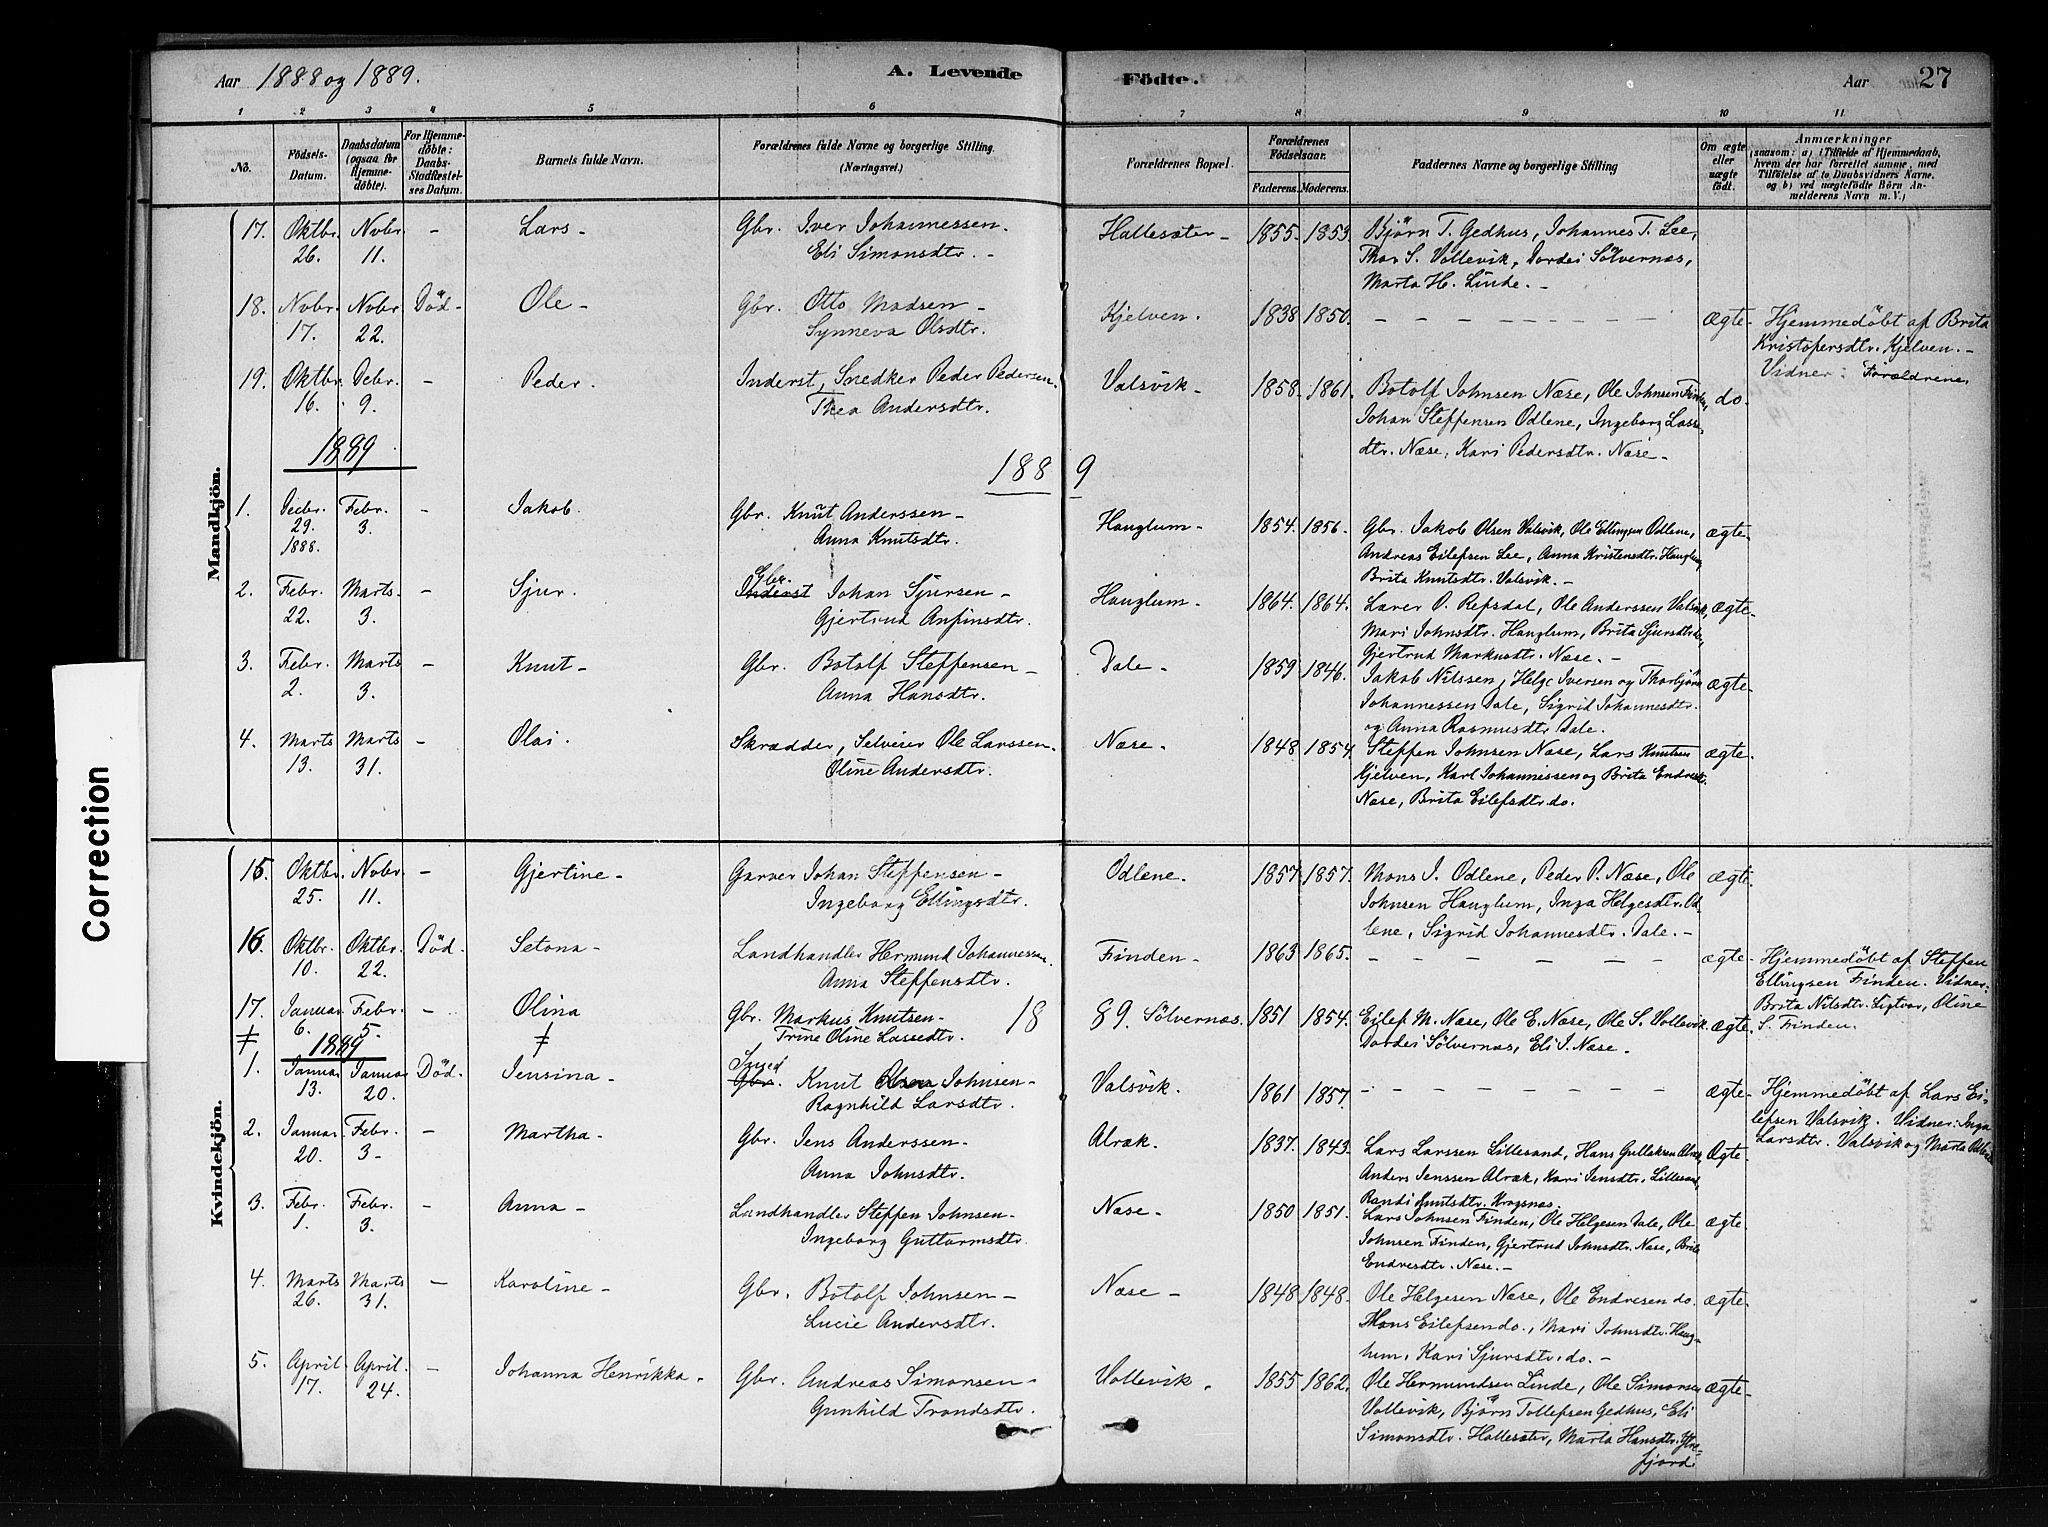 Aar 1888 og 1889. A. Levende Födte. Aar 27
1 2 3 4 5 6 7 8 9 10 11
No. Födsels-Datum. Daabsdatum (ogsaa for Hjemmedöbte). For Hjemmedöbte: Daabs-Stadfæstelses Datum. Barnets fulde Navn. Forældrenes fulde Navne og borgerlige Stilling (Næringsvei.) Forældrenes Bopæl. Forældrenes Födselsaar. Faderens. Moderens. Faddernes Navne og borgerlige Stilling Om ægte eller uægte födt. Anmærkninger (saasom: a) i Tilfælde af Hjemmedaab, hvem der har forrettet samme, med Tilföielse af to Daabsvidners Navne, og b) ved uægtefödte Börn Anmelderens Navn m. V.)
Mandkjön.
17. Oktbr. Nvbr. - Lars - Gbr. Iver Johannessen Hallesæter - 1855. 1853. Bjørn T. Gedhus, Johannes T. Lee,
26. 11. Eli Simonsdtr. - Thor S. Vollevik, Dordei Sölvernæs,
Marta H. Linde. -
18. Nvbr. Nvbr. Död - Ole - Gbr. Otto Madsen - Kjelven. 1838 1850. - - - - ægte - Hjemmedöbt af Brita
17. 22. Synneva Olsdtr. Kristofersdtr. Kjelven. -
Vidner: Forældrene.
19. Oktbr. Debr. - Peder. Inderst, Snedker Peder Pedersen. Valsvik - 1858. 1861. Botolf Johnsen Næse, Ole Johnsen Finden, do.
16. 9. Thea Andersdtr. Johan Steffensen Odlene, Ingeborg Lasse-
dtr. Næse, Kari Pedersdtr. Næse -
1889 1889
1. Decbr. Febr. - Jakob. Gbr. Knut Anderssen - Hauglum - 1854. 1856. Gbr. Jakob Olsen Valsvik, Ole Ellingsen Odlene, ægte -
29. 3. Anna Knutsdtr. Andreas Eilefsen Lee, Anna Kristensdtr. Hauglum
1888. Brita Knutsdtr. Valsvik. -
2. Febr. Marts - Sjur - Gbr. Inderst Johan Sjursen - Hauglum - 1864. 1864. Lærer O. Refsdal, Ole Anderssen Valsvik, ægte -
22. 3. Gjertrud Anfinsdtr. Mari Johnsdtr. Hauglum, Brita Sjursdtr. do,
Gjertrud Markusdtr. Næse. -
3. Febr. Marts - Knut - Gbr. Botolf Steffensen - Dale - 1859 1846. Jakob Nilssen, Helge Iversen og Thorbjørn ægte -
2. 3. Anna Hansdtr. Johannessen Dale, Sigrid Johannesdtr.
og Anna Rasmusdtr. Dale.
4. Marts Marts - Olai. Skrædder, Selveier Ole Larssen. Næse - 1848 1854. Steffen Johnsen Næse, Lars Knutsen ægte -
13. 31. Oline Andersdtr. Kjelven, Karl Johannessen og Brita Endresdtr.
Næse, Brita Eilefsdtr. do.
Kvindekjön.
15. Oktbr. Nvbr. - Gjertine - Garver Johan Steffensen - Odlene. 1857. 1857. Mons I. Odlene, Peder P. Næse, Ole ægte -
25. 11. Ingeborg Ellingsdtr. Johnsen Hauglum, Inga Helgesdtr. Od-
lene, Sigrid Johannesdtr. Dale. -
16. Oktbr. Oktbr. Död. Setona - Landhandler Hermund Johannessen. Finden - 1863 1865. - - - - ægte - Hjemmedöbt af Steffen
10. 22. Anna Steffensdtr. Ellingsen Finden. Vidner:
Brita Nilsdtr. Ligtvor, Oline
S. Finden.
17. Januar Febr. - Olina Gbr. Markus Knutsen - 1889. Sölvernæs. 1851 1854. Eilef M. Næse, Ole E. Næse, Ole S. Vollevik, ægte -
6. 5. Trine Oline Lassedtr. Dordei Sölvernæs, Eli I. Næse. -
1889
1. Januar Januar Död. Jensina - Gbr. Knut Johnsen - Valsvik. 1861 1857. - - - - ægte - Hjemmedöbt af Lars Ei-
13. 20. Ragnhild Larsdtr. lefsen Valsvik. Vidner: Inga
Larsdtr. Valsvik og Marta
2. Januar Febr. - Martha - Gbr. Jens Anderssen - Alræk. 1837. 1843. Lars Larssen Lillesand, Hans Gullaksen Alræk, Ægte -
20. 3. Anna Johnsdtr. Anders Jenssen Alræk, Kari Jensdtr. Lillesand,
Randi Knutsdtr. Kragsnæs.
3. Febr. Febr. - Anna - Landhandler Steffen Johnsen - Næse - 1850 1851. Lars Johnsen Finden, Ole Helgesen Dale, Ole ægte -
1. 3. Ingeborg Guttormsdtr. Johnsen Finden, Gjertrud Johnsdtr. Næse, Brita
Endresdtr. Næse. -
4. Marts Marts - Karoline - Gbr. Botolf Johnsen - Næse - 1848 1848. Ole Helgesen Næse, Ole Endresen do. ægte -
26. 31. Lucie Andersdtr. Hans Eilefsen do., Mari Johnsdtr. Haug-
lum, Kari Sjursdtr. do. -
5. April April. - Johanna Henrikka - Gbr. Andreas Simonsen - Vollevik. 1855 1862. Ole Hermundsen Linde, Ole Simonsen ægte -
17. 24. Gunhild Trondsdtr. Vollevik, Bjørn Tollefsen Gedhus, Eli
Simonsdtr. Hallesæter, Marta Hansdtr. Ytre-
fjord.
Correction